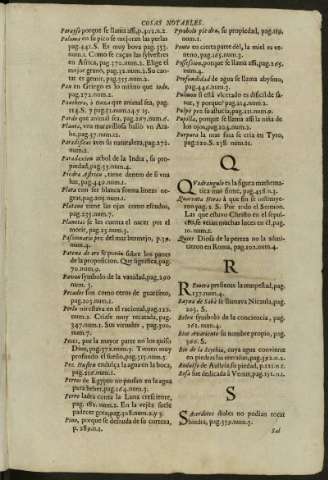 COSAS NOTABLES.
Parayso porque se llama assi, p.402.n.2.
Paloma en su pico se mejoran las perlas
pag.441.S. Es muy bova pag.353.
num.1. Como se caçan las sylvestres
en Africa, pag.370.num.2. Elige el
mejor grano, pag.32.num.2. Su can-
tar es gemir, pag.355.num.2.
Pan en Griego es lo mismo que todo,
pag.272.num.2.
Panthera, o onça que animal sea, pag.
Pardo que animal sea, pag.267.num.6.
Planta, vna maravillosa hallò vn Ara-
be, pag.37.num.1.
Paradiseas aves su naturaleza, pag.271.
num.2.
Paradaxion arbol de la India, su pro-
piedad, pag.33.num.4.
Piedra Astrios, tiene dentro de sì vna
luz, pag.440.num.1.
Plata con ser blanca forma lineas ne-
gras, pag.201.num.1.
Platano tiene las ojas como escudos,
pag.235.num.7.
Planetas se les cuenta el nacer por el
morir, pag.23.num.3.
Passionario pez del mar bermejo, p.32.
num.4.
Patena de oro se ponia sobre los panes
de la proposicion. Que significa, pag.
70.num.9.
Pavon symbolo de la vanidad, pag.290
num.3.
Pecados son como otros de gravissimo,
pag.203.num.1.
Perla no estava en el racional, pag.122.
num.2. Criase muy recatada, pag.
347.num.1. Sus virtudes, pag.310.
num.7.
Pezes, por la mayor parte no los quiso
Dios, pag.372.num.3. Y tienen muy
profundo el sueño, pag.315.num.3.
Pez Huso endulça la agua en la boca,
pag.216.num.1.
Perros de Egypto no paran en la agua
para beber, pag.164.num.3.
Perro ladra contra la Luna creciente,
pag.180.num.2. En la vejez suele
padecer gota, pag.328.num.2.y 3.
Pino, porque se desnuda de su corteza,
p.289.n.2.
Pyrobolo piedra, su propiedad, pag.119.
num.1.
Ponto en cierta parte dèl, la miel es ve-
neno, pag.165.num.3.
Possession, porque se llama assi, pag.265.
num.4.
Profundidad de agua se llama abysmo,
pag.446.num.3.
Pulmon si està vlcerado es dificil de sa-
nar, y porque? pag.214.num.1.
Pulpo pez su astucia, pag.211.num.6.
Pupilla, porque se llama assi la niña de
los ojos, pag.204.num.2.
Purpura la mas fina se cria en Tyro,
pag.120.S. 238. num.11.
Q
Quadrangulo es la figura mathema-
tica mas firme, pag.458.n.3.
Quarenta Horas à que fin se instituye-
ron pag.1.S. Por todo el Sermon.
Las que estuvo Christo en el sepul-
cro, se veian muchas luces en èl, pag.
10.num.1.
Quies Diosa de la pereza no la admi-
tieron en Roma, pag.102.num.4.
R
Ramera presume la magestad, pag.
137.num.4.
Reyna de Sabà se llamava Nicaula, pag.
205. S.
Relox symbolo de la conciencia, pag.
262. num.4.
Rico Avariento su nombre proprio, pag.
300. S.
Rio de la Scythia, cuya agua convierte
en piedras las entrañas, pag.352.n.2.
Rodulfo de Austria su piedad, p.121.n.2.
Rosa fue dedicada à Venus, pag.151.n.1.
S
Sacerdotes diales no podian tocar
hiedra, pag.339.num.3.
Sal